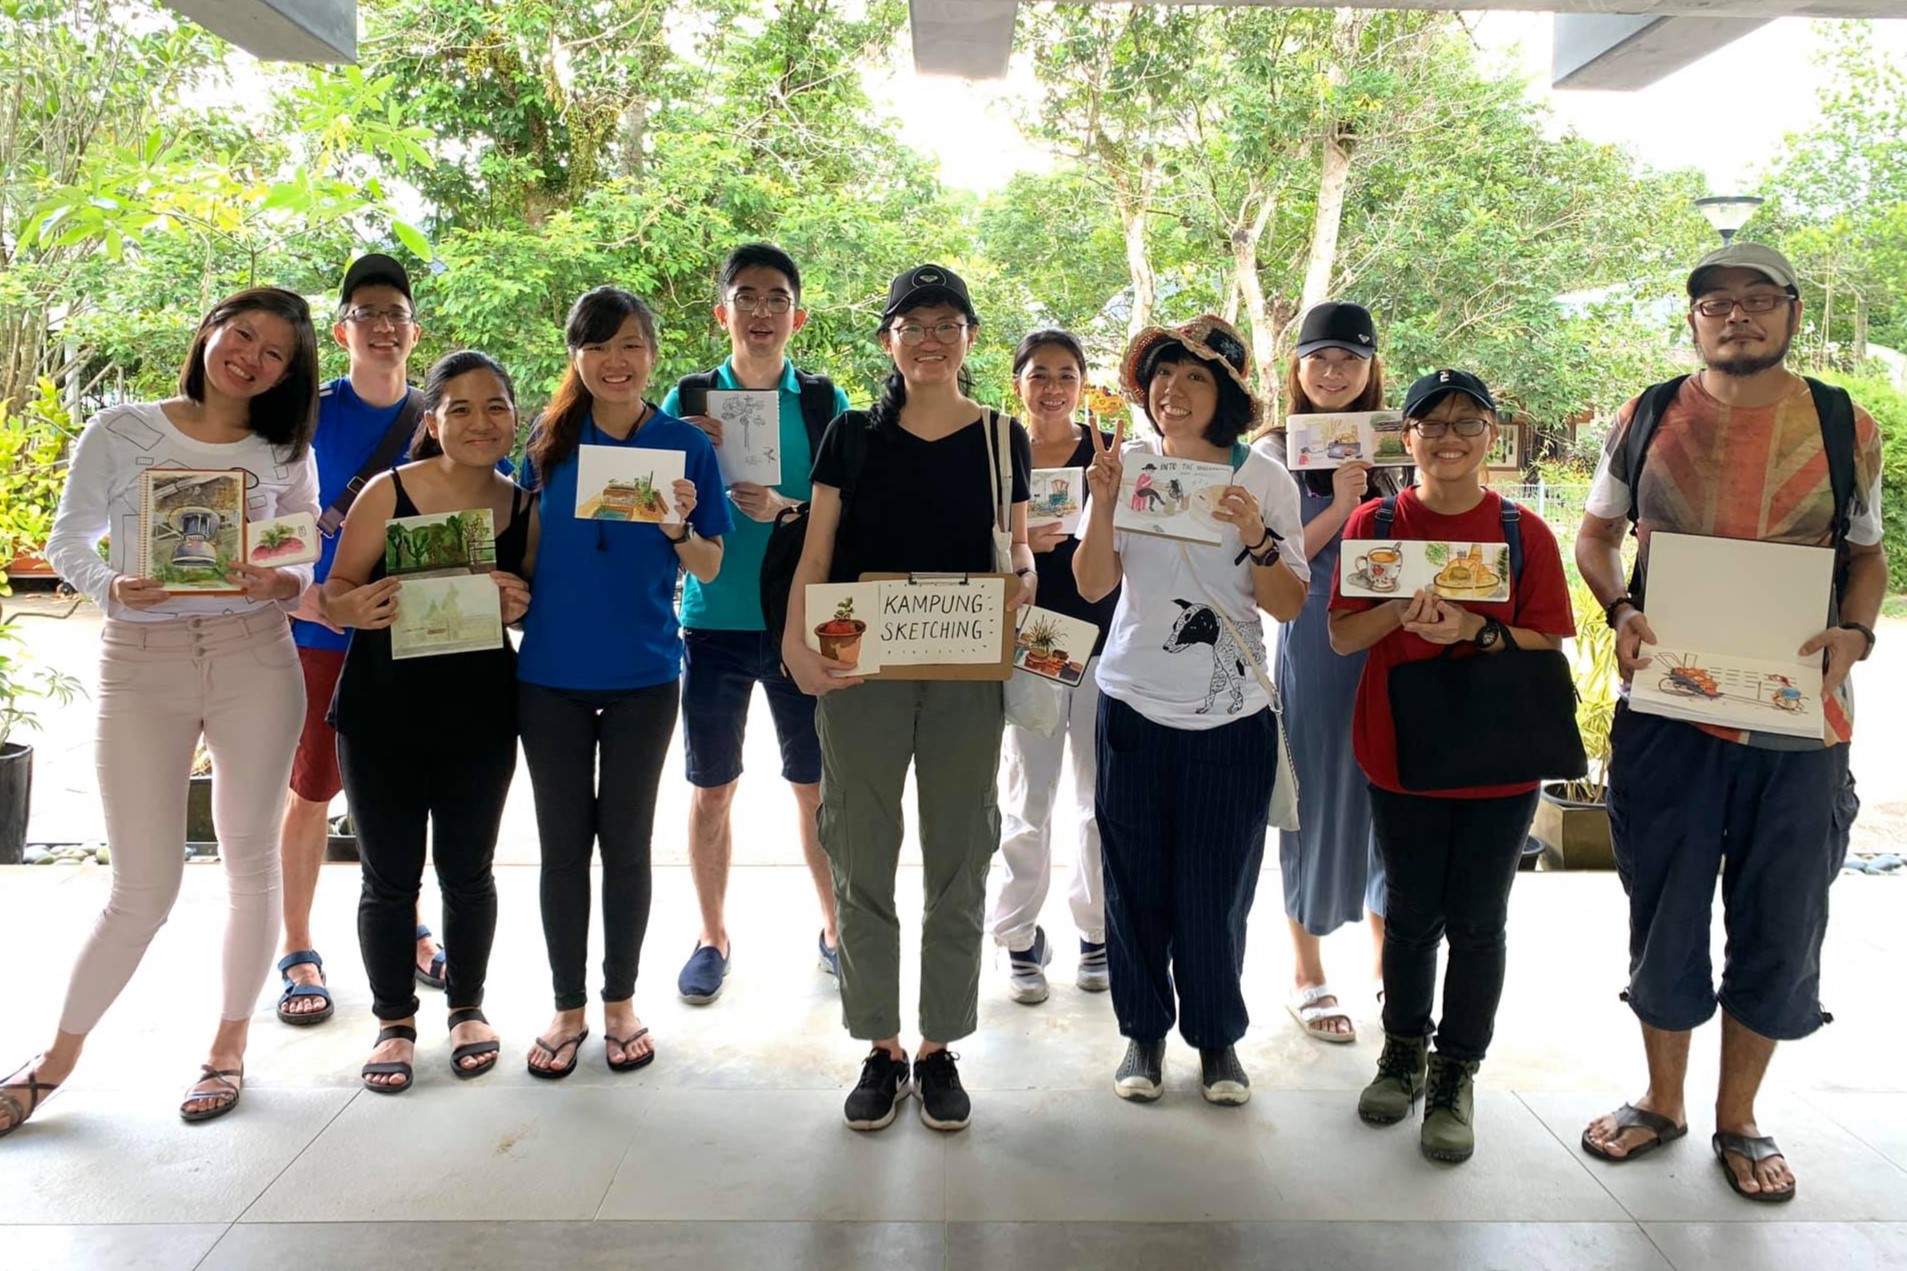 KAMPUNG
SKETCHING
INTO THE